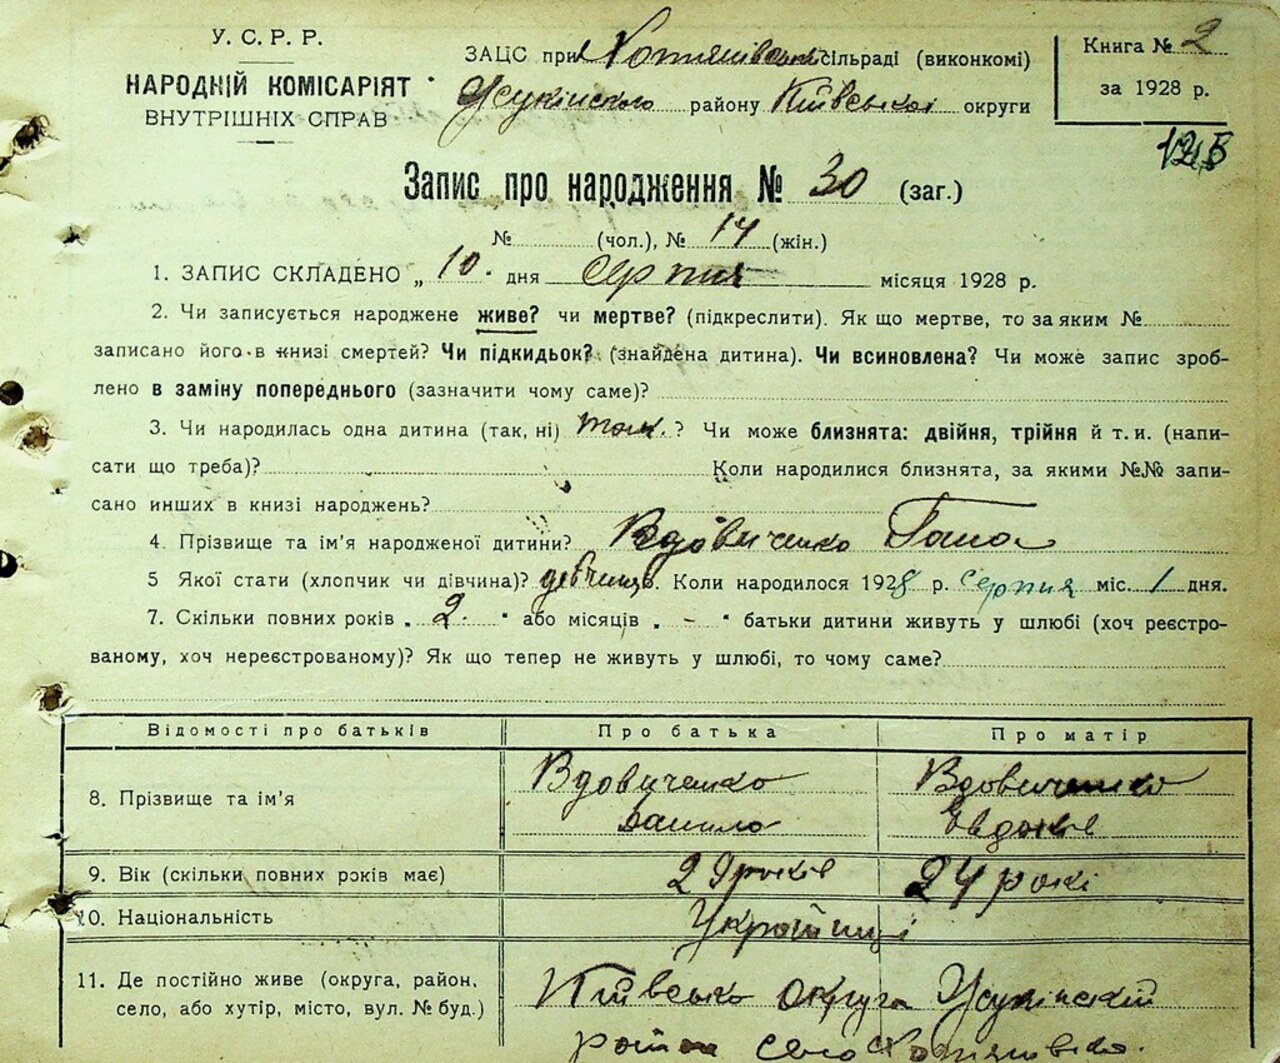 У. С. Р. Р.
НАРОДНІЙ КОМІСАРІЯТ
ВНУТРІШНІХ СПРАВ
ЗАЦС при Хотянівській сільраді (виконкомі)
району Київської округи
Книга № 2
за 1928 р.
Запис про народження № 30 (заг.)
№ (чол.), № 14 (жін.)
1. ЗАПИС СКЛАДЕНО „ 10. дня серпня місяця 1928 р.
2. Чи записується народжене живе? чи мертве? (підкреслити). Як що мертве, то за яким №
записано його в книзі смертей? Чи підкидьок? (знайдена дитина). Чи всиновлена? Чи може запис зроб-
лено в заміну попереднього (зазначити чому саме)?
3. Чи народилась одна дитина (так, ні) так. ? Чи може близнята: двійня, трійня й т. и. (напи-
сати що треба)? Коли народилися близнята, за якими №№ запи-
сано инших в книзі народжень?
4. Прізвище та ім'я народженої дитини? Вдовиченко Гана
5 Якої стати (хлопчик чи дівчина)? Коли народилося 1928 р. серпня міс. 1 дня.
7. Скільки повних років „ 2. " або місяців „ - " батьки дитини живуть у шлюбі (хоч реєстро-
ваному, хоч нереєстрованому)? Як що тепер не живуть у шлюбі, то чому саме?
Відомості про батьків Про батька Про матір
8. Прізвище та ім'я Вдовиченко Данило Вдовиченко
9. Вік (скільки повних років має) 29 років 24 рокі
10. Національність Українці
11. Де постійно живе (округа, район,
село, або хутір, місто, вул. № буд.) Київсько округа
село